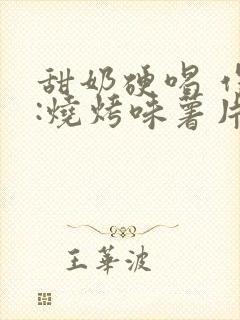 甜奶硬唱
:燒烤味薯片
王華波